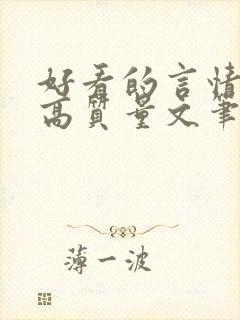 好看的言情
高质量文笔
薄一波